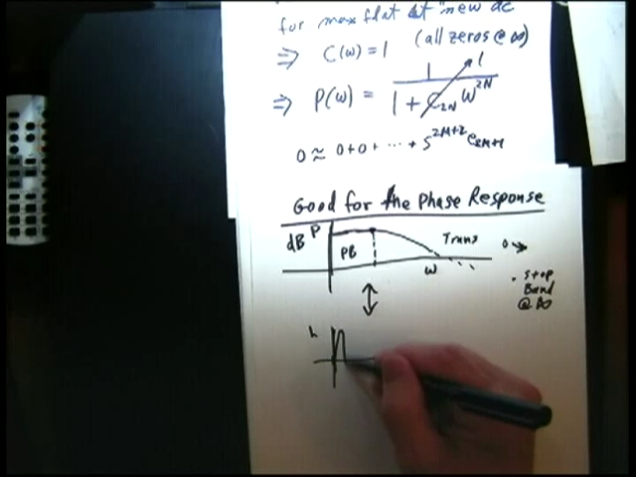 for max flat at "new dc
⇒ C(ω) = 1 (all zeros @ ∞)
⇒ P(ω) = 1 / (1 + C₂ₙ ω²ᴺ) 1
0 ≈ 0 + 0 + ... +
Good for the Phase Response
dB P PB Trans 0
ω
. Stop
Band
@ ∞
h